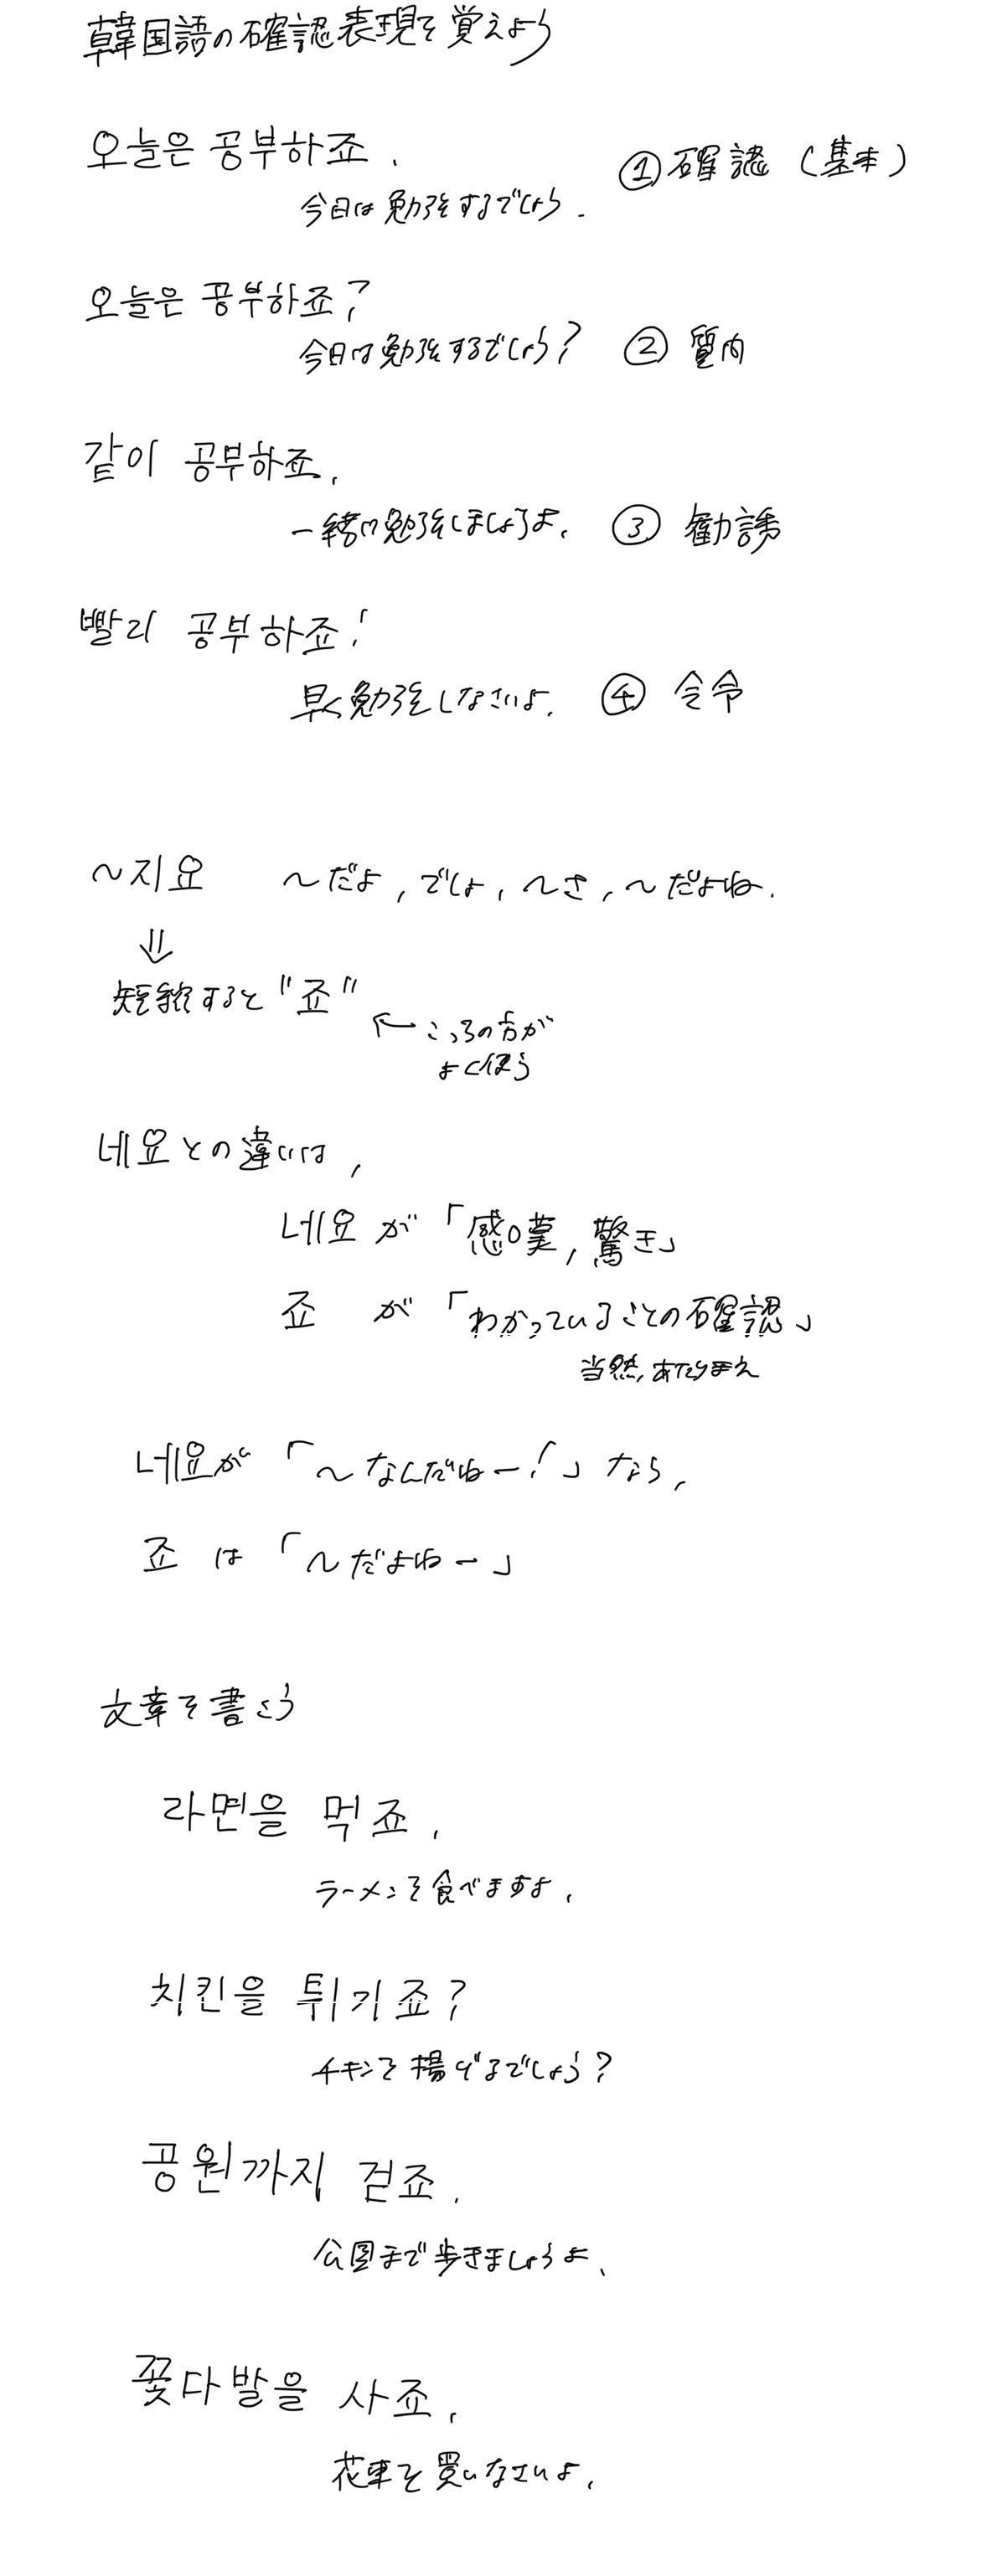 韓国語の確認表現を覚えよう
오늘은 공부하죠.
今日は勉強するでしょう.
① 確認 (基本)
오늘은 공부하죠?
今日は勉強するでしょう? ② 質内
같이 공부하죠.
一緒に勉強しましょうよ. ③ 勧誘
빨리 공부하죠!
早く勉強しなさいよ. ④ 令令
~지요 ~だよ, でしょ, ~さ, ~だよね.
⇓
短縮すると "죠"
← こっちの方が
よく使う
네요との違いは,
네요が「感嘆, 驚き」
죠 が「わかっていることの確認」
当然, あたりまえ
네요が「~なんだねー!」なら,
죠 は「~だよねー」
文章を書こう
라면을 먹죠.
ラーメンを食べますよ.
치킨을 튀기죠?
チキンを揚げるでしょう?
공원까지 걷죠.
公園まで歩きましょうよ.
꽃다발을 사죠.
花束を買いなさいよ.